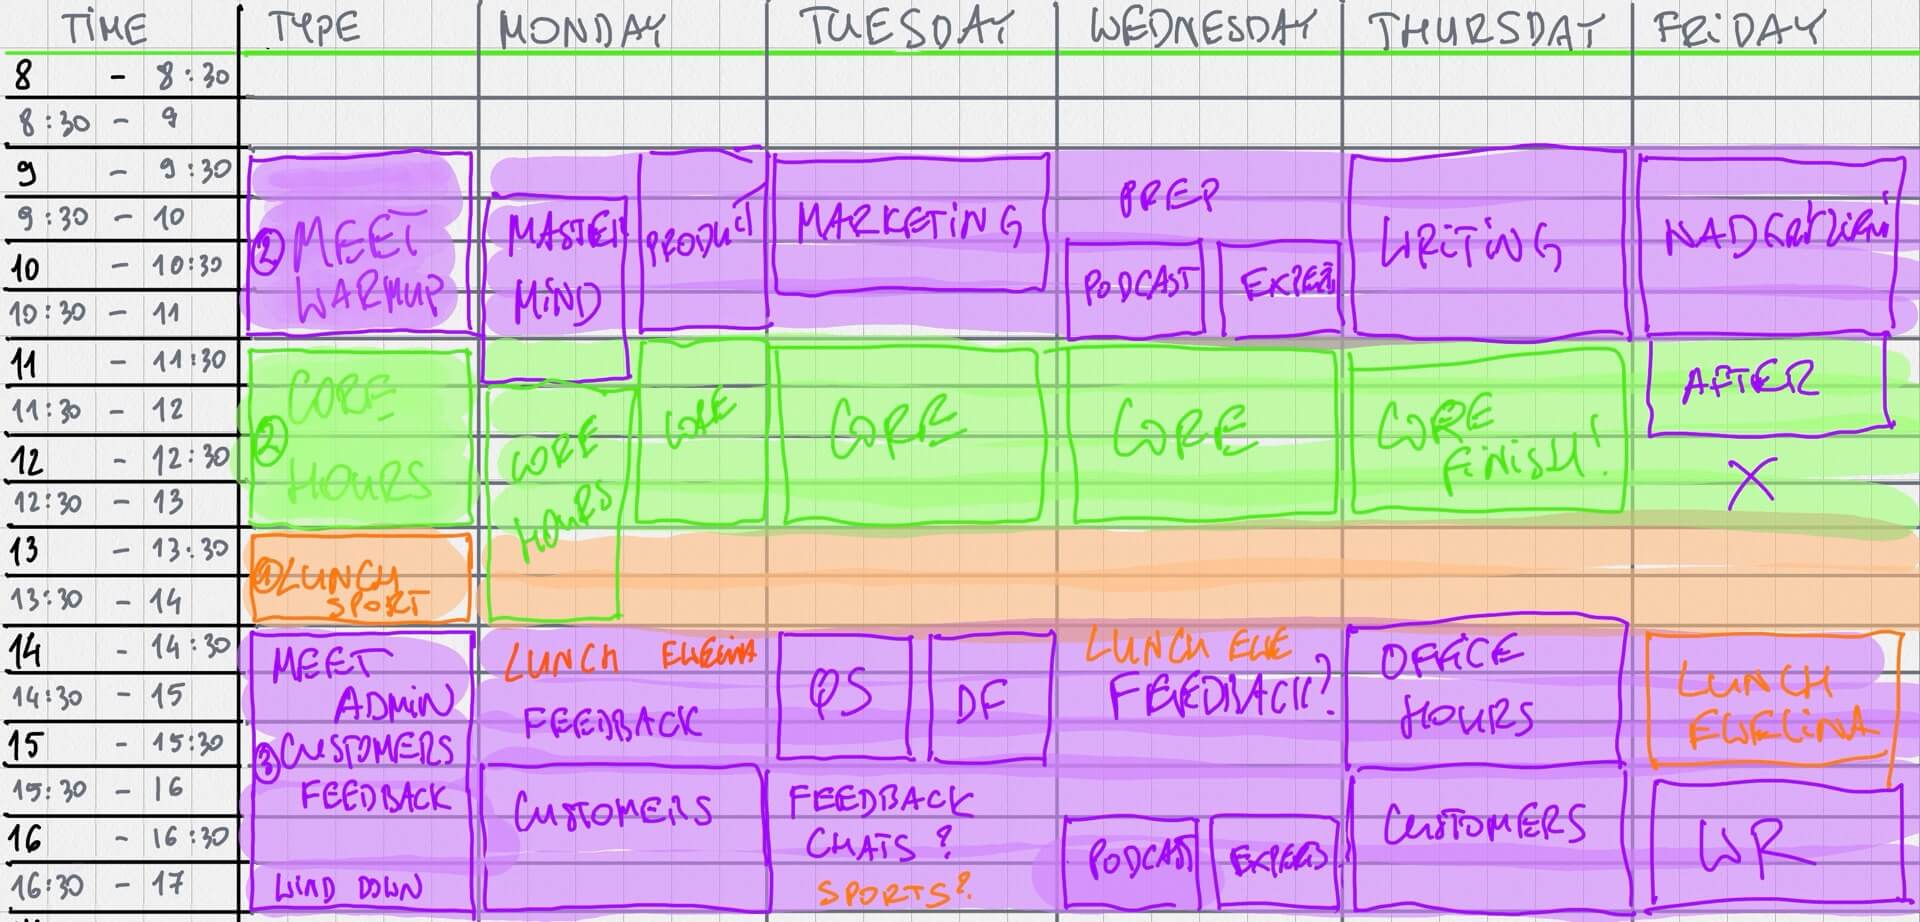 TIME TYPE MONDAY TUESDAY WEDNESDAY THURSDAY FRIDAY
8 - 8:30
8:30 - 9
9 - 9:30
9:30 - 10
10 - 10:30
10:30 - 11
11 - 11:30
11:30 - 12
12 - 12:30
12:30 - 13
13 - 13:30
13:30 - 14
14 - 14:30
14:30 - 15
15 - 15:30
15:30 - 16
16 - 16:30
16:30 - 17
2 MEET
WARMUP
2 CORE
HOURS
1 LUNCH
SPORT
MEET
ADMIN
3 CUSTOMERS
FEEDBACK
WIND DOWN
MASTER
MIND
PRODUCT
CORE
HOURS
CORE
LUNCH EWELINA
FEEDBACK
CUSTOMERS
MARKETING
CORE
QS
DF
FEEDBACK
CHATS?
SPORTS?
PREP
PODCAST
CORE
LUNCH EWE
FEEDBACK?
PODCAST
EXPERTS
WRITING
CORE
FINISH!
OFFICE
HOURS
CUSTOMERS
AFTER
X
LUNCH
EWELINA
WR